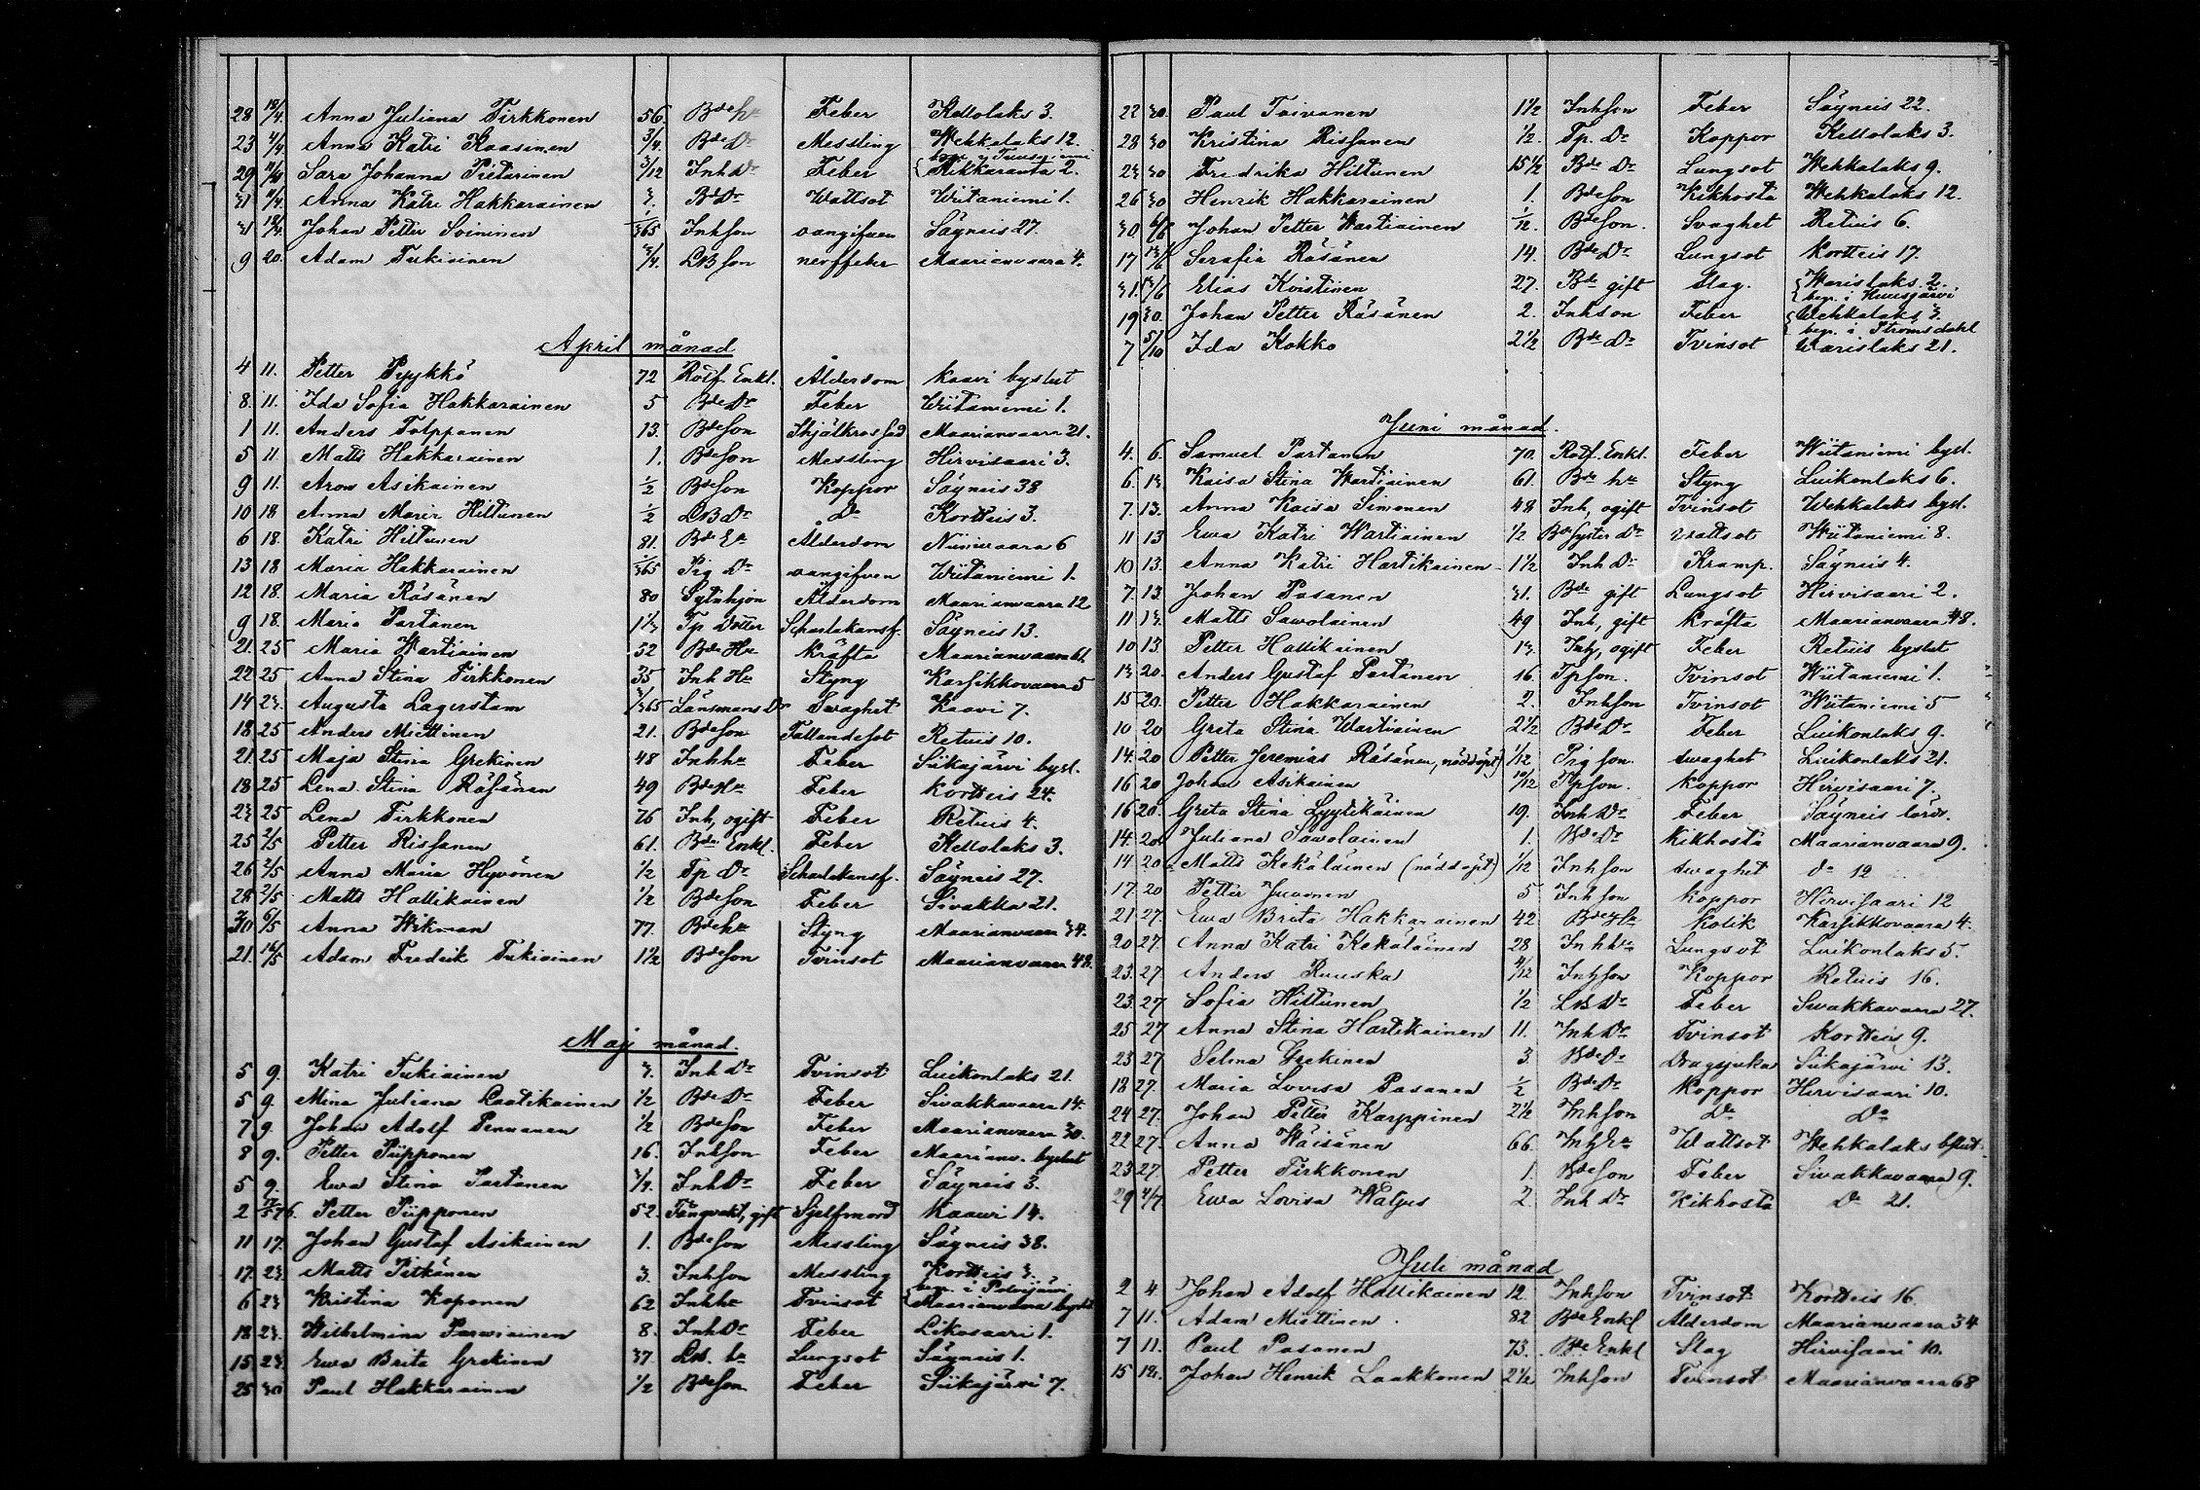 28 18/4. Anna Juliana Tirkkonen 56 Bde hu Feber Kettolaks 3.
23 4/4 Anna Katri Kaasinen 3/4. Bde Dr Messling Wehkalaks 12.
29 Sara Johanna Pietarinen 3/12 Inh Dr Feber Rikkaranta 2.
31 Anna Katri Hakkarainen 3. Bde Dr Wattsot Wiitaniemi 1.
31 18/4. Johan Petter Soininen 1/365 Inhson oangifven Säyneis 27.
9 20. Adam Tukiainen 3/4. LB son nerffeber Maarianvaara 4.
April månad
4 11. Petter Pyykkö 72 Rotf. Enkl. Ålderdom Kaavi byslut
8. 11. Ida Sofia Hakkarainen 5 Bde Dr Feber Wiitaniemi 1.
1 11. Anders Tolppanen 13. Bde son Maarianvaara 21.
5 11 Matts Hakkarainen 1. Bde son Messling Hirvisaari 3.
9 11. Aron Asikainen 1/2 Bde son Koppor Säyneis 38
10 18 Anna Maria Hiltunen 1/2 LB Dr Do Kortteis 3.
6 18. Katri Hiltunen 81. Bde Ea Ålderdom Niinivaara 6
13 18 Maria Hakkarainen 1/365 Pig Dr oangifven Wiitaniemi 1.
12 18. Maria Räsänen 80 Sytnhjon Ålderdom Maarianvaara 12
9 18. Maria Partanen 1 1/3 Tp Dotter Scharlakansf. Säyneis 13.
21. 25 Maria Wartiainen 52 Bde Hu Kräfta Maarianvaara 61.
22 25 Anna Stina Tirkkonen 35 Inh Hu Styng Karsikkovaara 5
14 23. Augusta Lagerstam 3/365 Länsmans Dr Swaghet Kaavi 7.
18 25 Anders Miettinen 21. Bde son Fallandesot Retuis 10.
21. 25 Maja Stina Grekinen 48 Inh hu Feber Siikajärvi bysl.
18 25 Lena Stina Räsänen 49 Bde Hu Feber Kortteis 24.
23 25 Lena Tirkkonen 76 Inh, ogift Feber Retuis 4.
25 2/5 Petter Rissanen 61. Bde Enkl. Feber Kettolaks 3.
26 2/5 Anna Maria Hyvönen 1/2 Tp Dr Scharlakansf. Säyneis 27.
28 2/5 Matts Hallikainen 1/2 Bde son Feber Sivakka 21.
30 6/5 Anna Wikman 77. Bde hu Styng Maarianvaara 34.
21. 16/5 Adam Fredrik Tukiainen 1 1/2 Bde son Tvinsot Maarianvaara 48.
Maj månad.
5 9. Katri Tukiainen 3. Inh Dr Tvinsot Luikonlaks 21.
5 9. Mina Juliana Laatikainen 1/2 Bde Dr Feber Sivakkavaara 14.
7 9. Johan Adolf Pennanen 1/2 Bde son Feber Maarianvaara 30.
8 9. Petter Piipponen 16. Inhson Feber Maarianv. byslut
5 9. Ewa Stina Partanen Inh Dr Feber Säyneis 3.
2 Petter Piipponen 52. Fångvakt, gift Sjelfmord Kaawi 14.
11 17. Johan Gustaf Asikainen 1. Bde son Messling Säyneis 38.
17. 23. Matts Pitkänen 3. Inhson Messling Kortteis 3.
6 23 Kristina Koponen 62 Inh hu Tvinsot begr. i Polvijärvi Maarianvaara byslut
18 23. Wilhelmina Parviainen 8. Inh Dr Feber Likosaari 1.
15 23. Ewa Brita Grekinen 37 LB. hu Lungsot Säyneis 1.
25 30 Paul Hakkarainen 1/2 Bde son Feber Siikajärvi 7.
22 30. Paul Toivanen 1 1/2 Inhson Feber Säyneis 22.
28 30 Kristina Rissanen 1/2. Tp. Dr Koppor Kettolaks 3.
23 30 Fredrika Hiltunen 15 1/2 Bde Dr Lungsot Wehkalaks 9.
26 30 Henrik Hakkarainen 1. Bde son Kikhosta Wehkalaks 12.
30 6/6 Johan Petter Wartiainen 1/12. Bde son. Svaghet Retuis 6.
17 13/6 Serafia Räsänen 14. Bde Dr Lungsot Kortteis 17.
31. 13/6 Elias Kvistinen 27. Bde gift Slag. Warislaks 2. begr. i Nuusjärvi
19 30. Johan Petter Räsänen 2. Inhson Feber Wehkalaks 3. begr. i Strömsdahl
7 5/10 Ida Kokko 2 1/2 Bde Dr Tvinsot Warislaks 21.
Juni månad.
4. 6. Samuel Partanen 70. Rotf. Enkl. Feber Wiitaniemi bysl.
6 13 Kaisa Stina Wartiainen 61. Bde hu Styng Luikonlaks 6.
7. 13. Anna Kaisa Simonen 48 Inh, ogift Tvinsot Wehkalaks bysl.
11 13 Ewa Katri Wartiainen 1/2 Bde Syster Dr Wattsot Wiitaniemi 8.
10 13. Anna Katri Hartikainen 1 1/2 Inh Dr Kramp. Säyneis 4.
7. 13 Johan Pasanen 31. Bde gift Lungsot Hirvisaari 2.
11 13 Matts Sawolainen 49 Inh, gift Kräfta Maarianvaara 48.
10 13. Petter Hallikainen 13. Inh, ogift Feber Retuis byslut
13 20. Anders Gustaf Partanen 16. Tpson. Tvinsot Wiitaniemi 1.
15 20. Petter Hakkarainen 2. Inhson Tvinsot Wiitaniemi 5
10 20 Greta Stina Wartiainen 2 1/2 Bde Dr Feber Luikonlaks 9.
14. 20 Petter Jeremias Räsänen, (nöddöpt) 1/12 Pig son. Swaghet Luikonlaks 21.
16 20 Johan Asikainen 10/12 Tpson. Koppor Hirvisaari 7.
16 20. Greta Stina Lyytikäinen 19. Inh Dr Feber Säyneis
14. 20. Juliana Sawolainen 1. Bde Dr Kikhosta Maarianvaara 9.
14 20 Matts Kekäläinen (nöddöpt) 1/12 Inhson Swaghet do 12
17. 20 Petter Juvonen 5 Inhson Koppor Hirvisaari 12
21 27. Ewa Brita Hakkarainen 42 Bde Hu Kolik Karsikkovaara 4.
20 27. Anna Katri Kekäläinen 28 Inh hu Lungsot Luikonlaks 5.
23. 27. Anders Ruuska 4/12 Inhson Koppor Retuis 16.
23. 27 Sofia Hiltunen 1/2 LB Dr Feber Sivakkavaara 27.
25 27 Anna Stina Hartikainen 11. Inh Dr Tvinsot Kortteis 9.
23 27 Selma Grekinen 3 Bde Dr Dragsjuka Siikajärvi 13.
18 27. Maria Lovisa Pasanen 1/2 Bde Dr Koppor Hirvisaari 10.
24 27. Johan Petter Karppinen 2 1/2 Inhson Do Do
22 27. Anna Wäisänen 66. Inh Ea Wattsot Wehkalaks bslut
23 27. Petter Tirkkonen 1. Bde son Feber Sivakkavaara 9.
29 4/7 Ewa Lovisa 2. Inh Dr Kikhosta Do 21.
Juli månad
2 4 Johan Adolf Hallikainen 12 Inhson Tvinsot Kortteis 16.
7 11. Adam Miettinen 82 Bde Enkl Ålderdom Maarianvaara 34
7 11. Paul Pasanen 73. Bde Enkl Slag Hirvisaari 10.
15 18. Johan Henrik Laakkonen 2 1/2 Inhson Tvinsot Maarianvaara 68